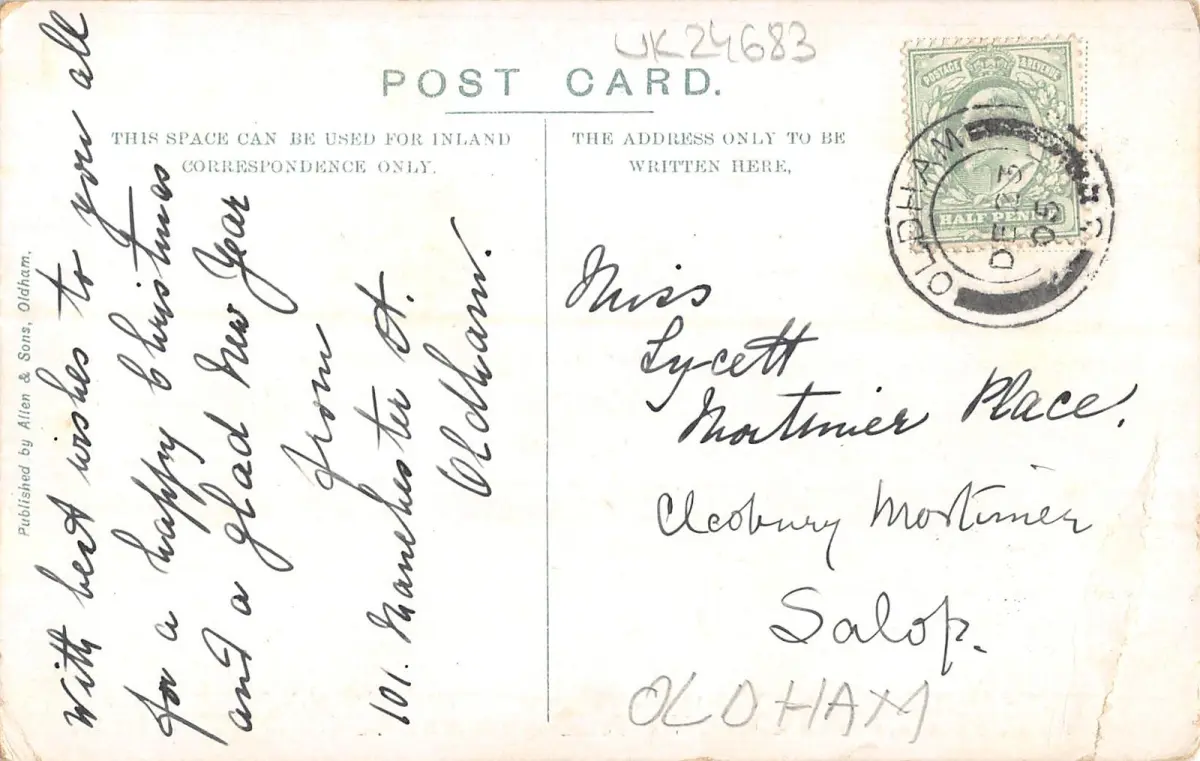 UK24683
POST CARD.
THIS SPACE CAN BE USED FOR INLAND
CORRESPONDENCE ONLY.
THE ADDRESS ONLY TO BE
WRITTEN HERE,
POSTAGE & REVENUE
HALF PENNY
OLDHAM
DE 23
05
With best wishes to you all
for a happy Christmas
and a glad New Year
from
101. Manchester St.
Oldham.
Miss
Lycett
Mortimer Place.
Cleobury Mortimer
Salop.
OLDHAM
Published by Allen & Sons, Oldham.